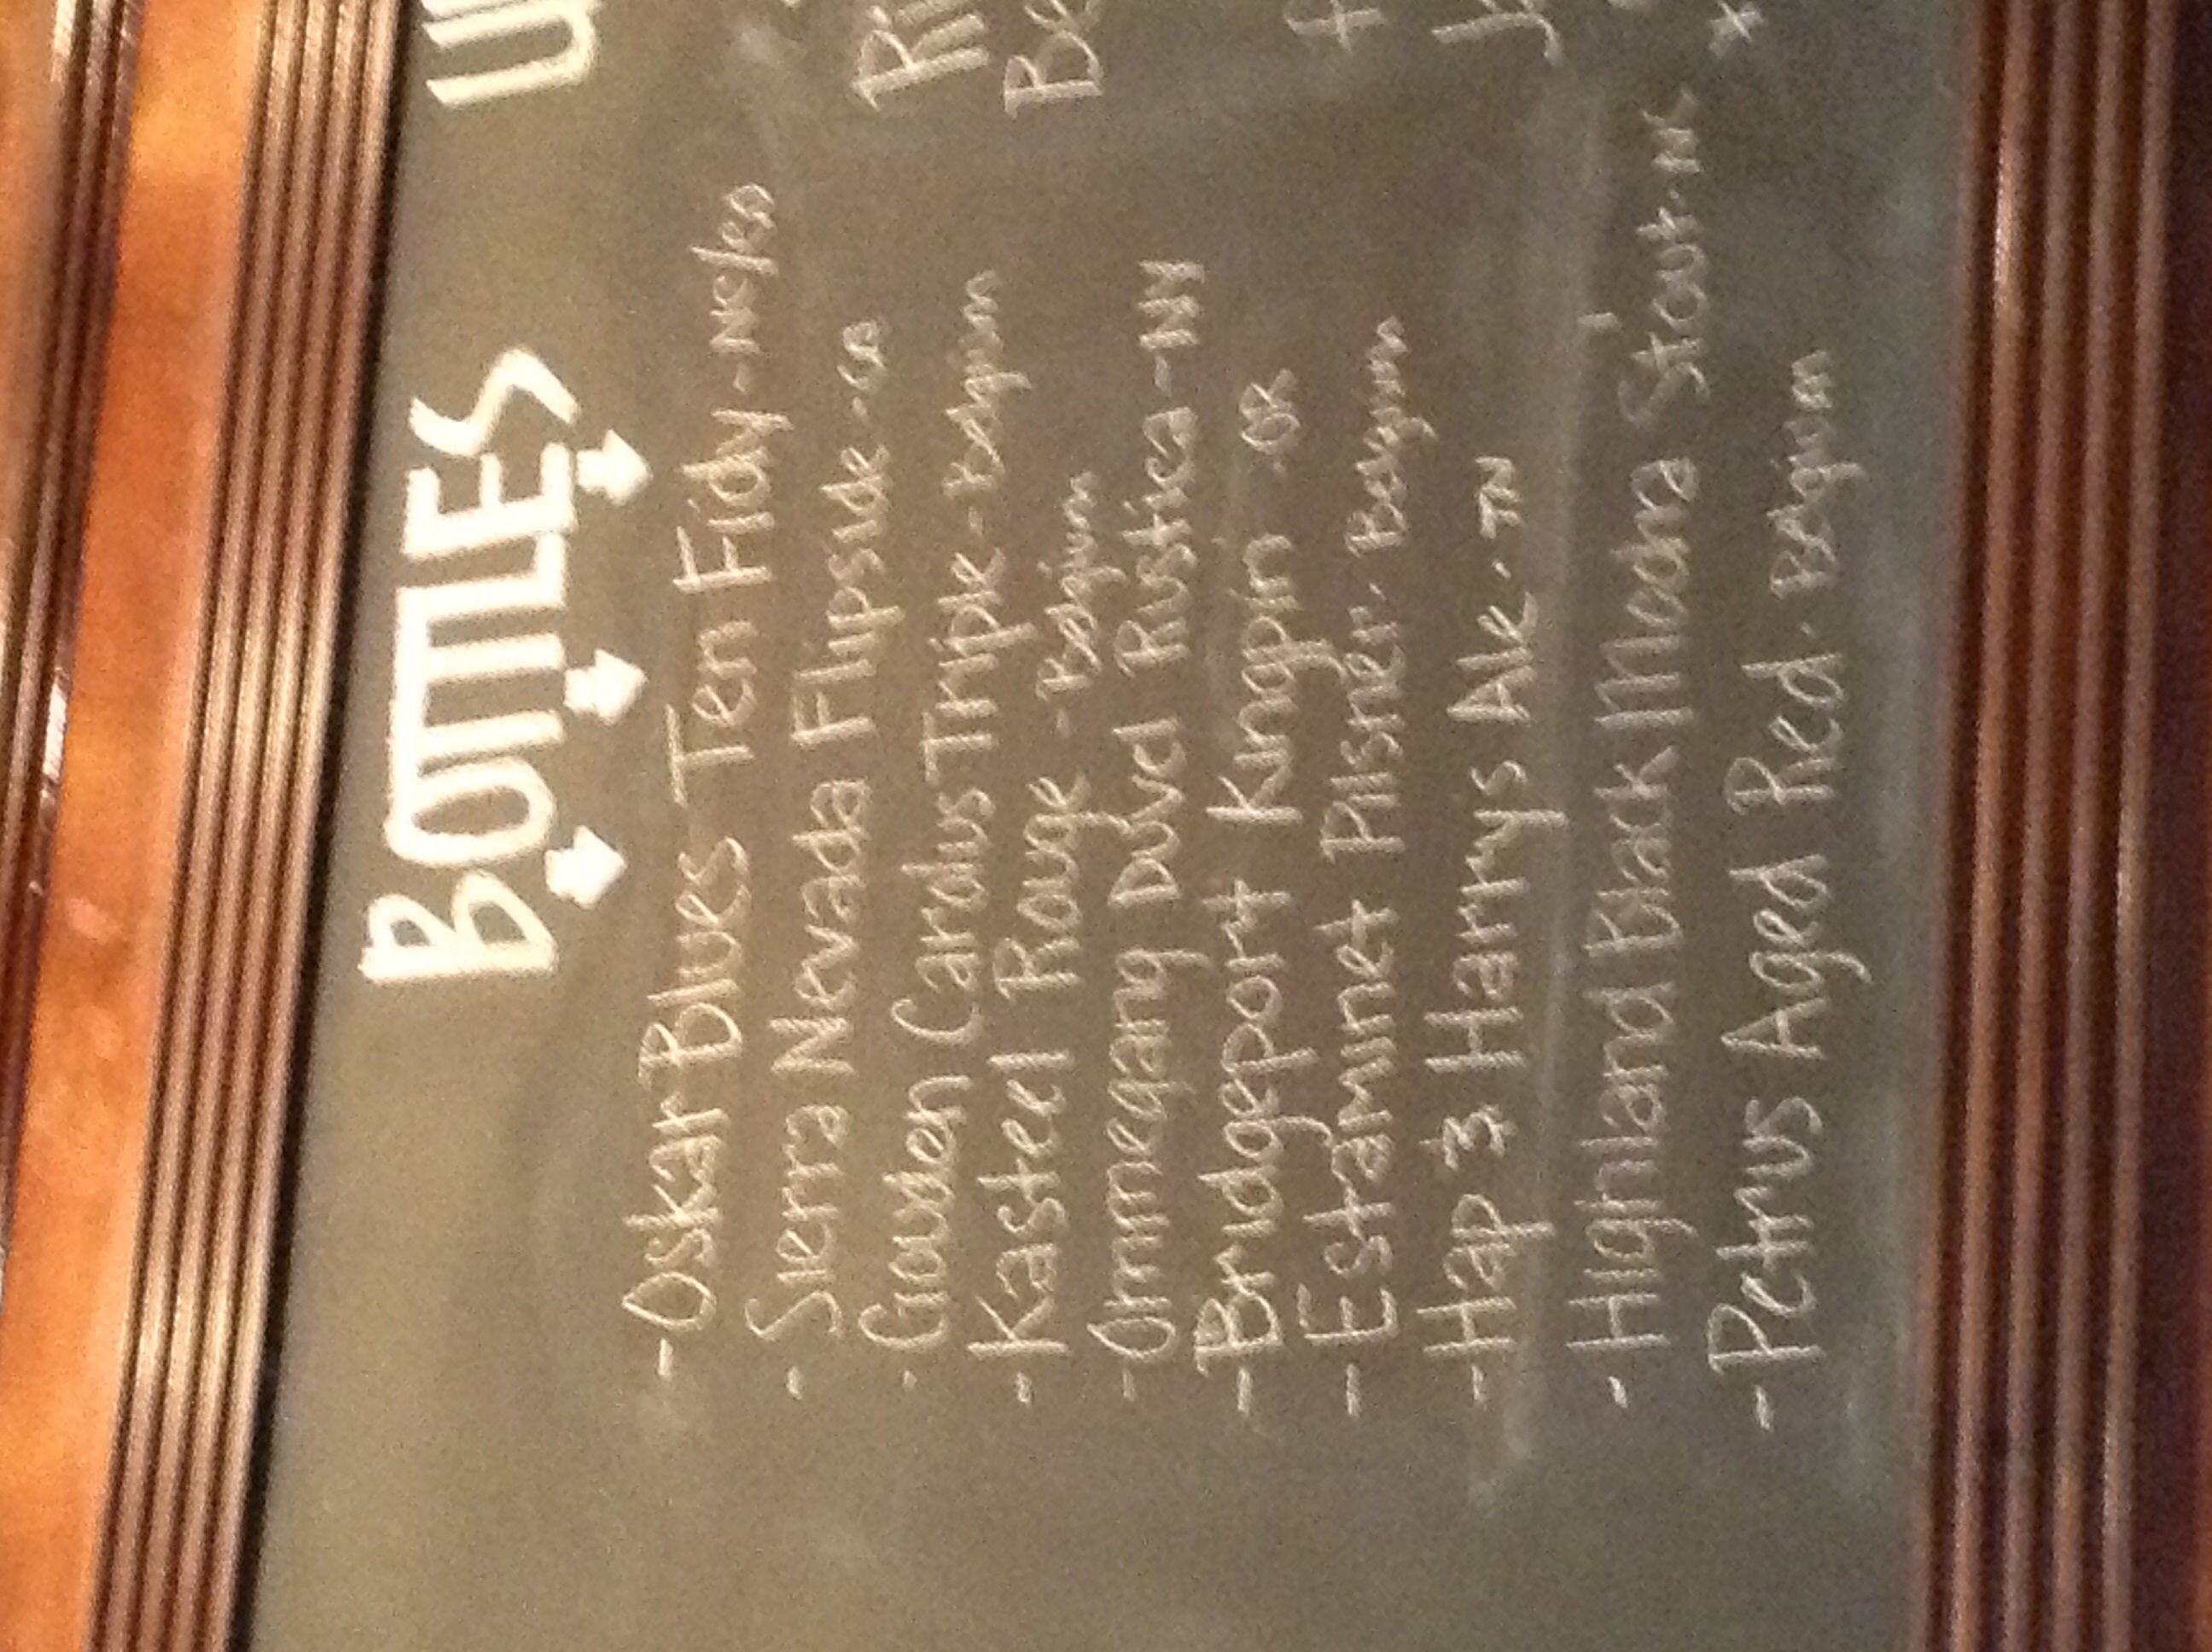 BOTTLES
- Oskar Blues Ten Fidy - NC/CO
- Sierra Nevada Flipside - CA
- Gouden Carolus Triple - Belgium
- Kasteel Rouge - Belgium
- Ommegang Duvel Rustica - NY
- Bridgeport Kingpin - OR
- Estaminet Pilsner - Belgium
- Hap & Harrys Ale - TN
- Highland Black Mocha Stout - NC
- Petrus Aged Red - Belgium